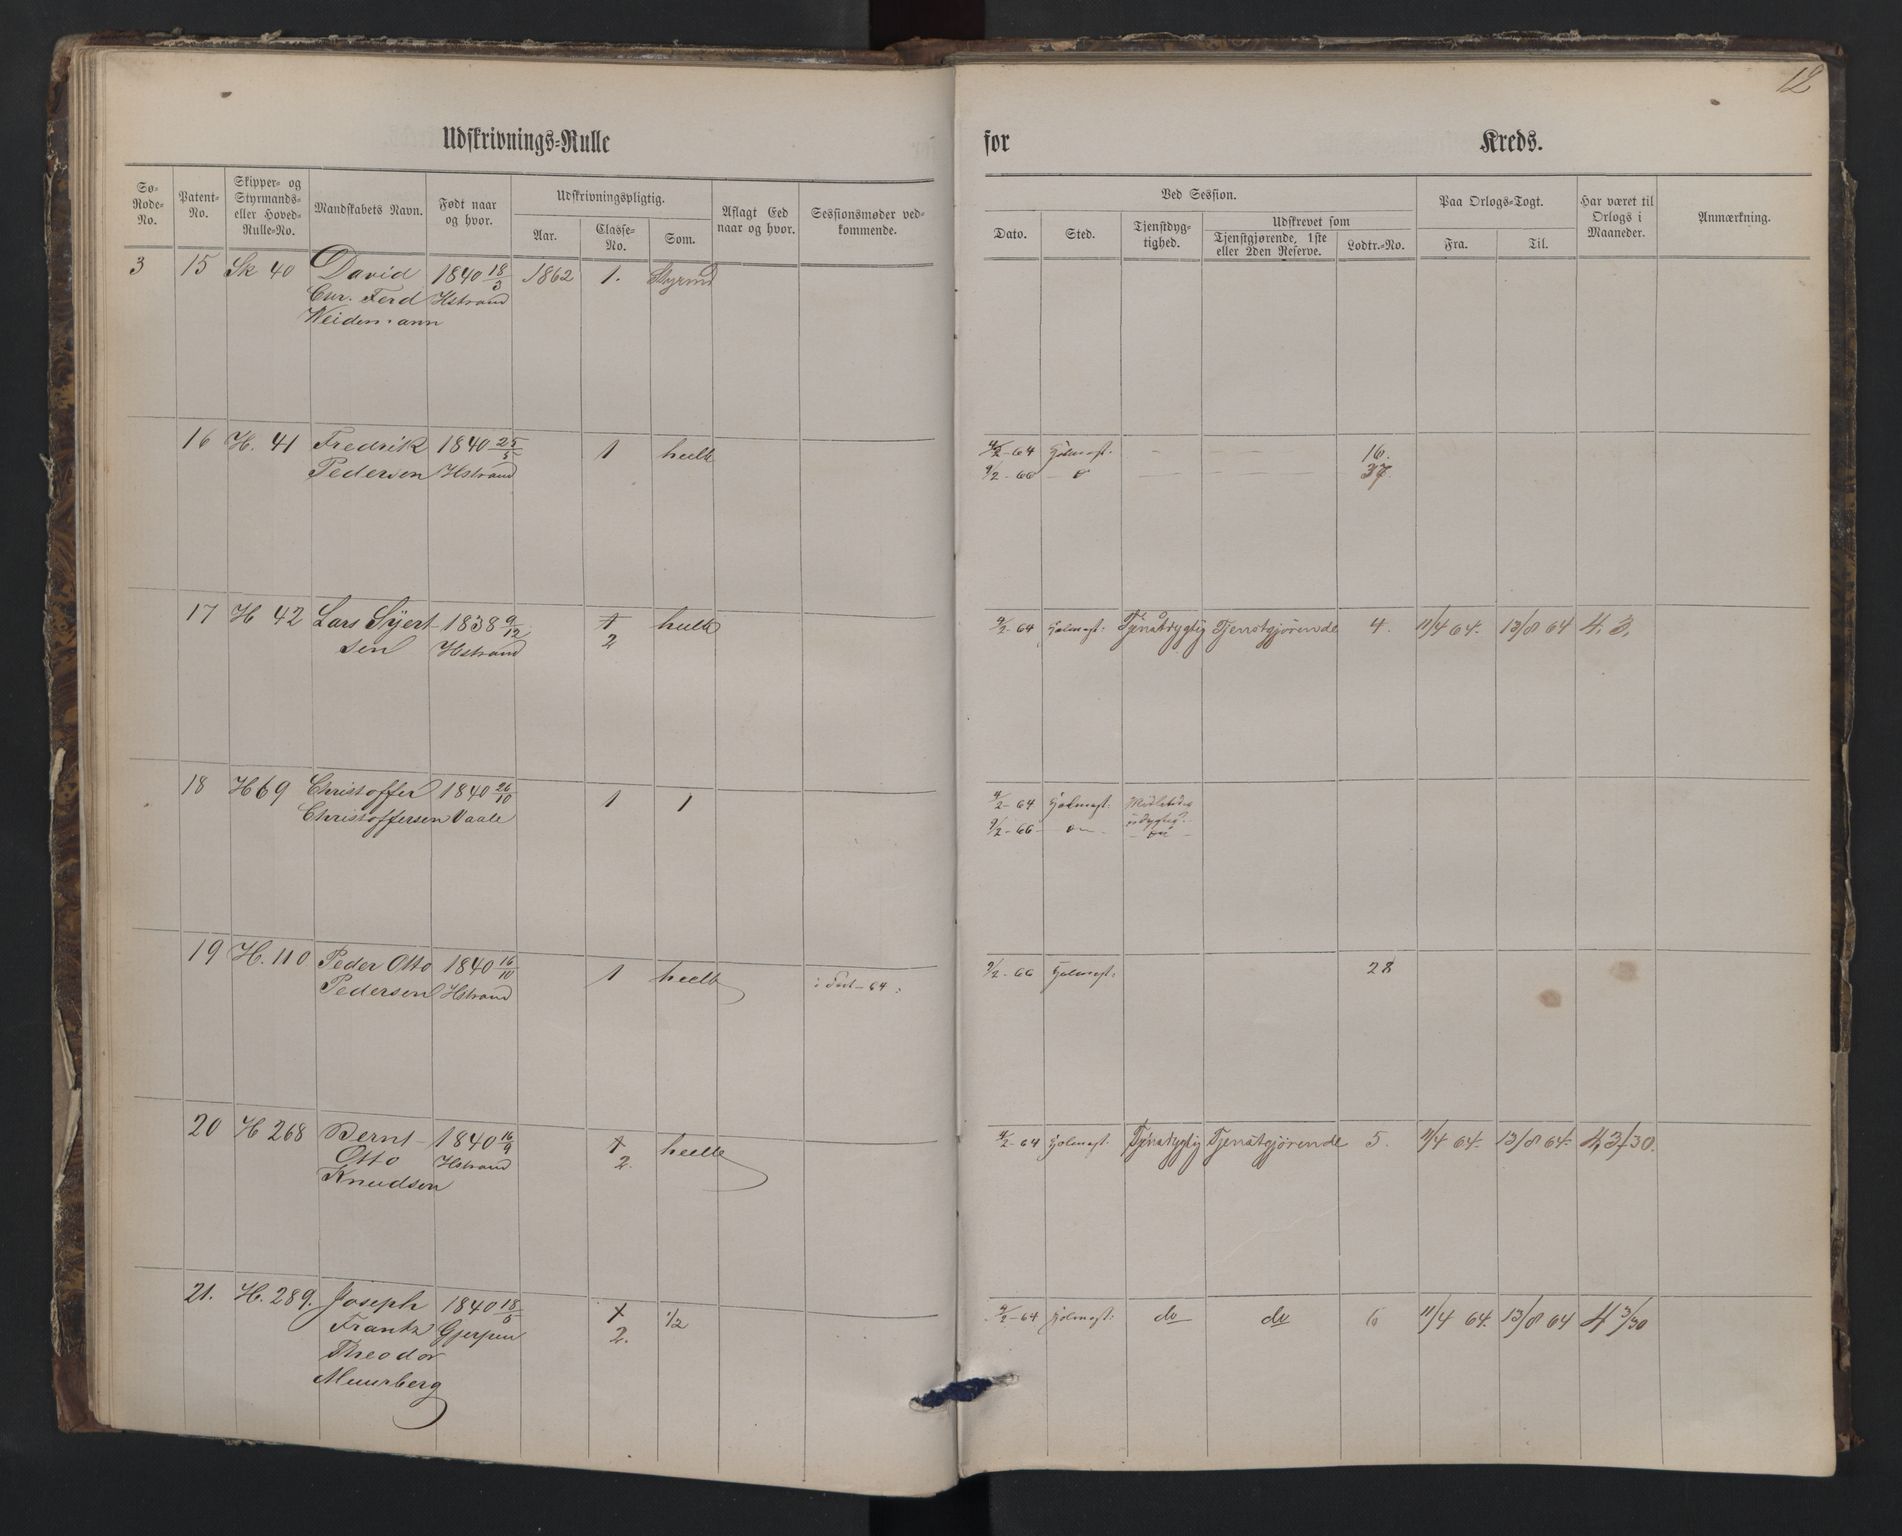 12
Udskrivnings-Rulle
for Kreds.
Sø-Rode-No.
Patent-No.
Skipper- og Styrmands- eller Hoved-Rulle-No.
Mandskabets Navn.
Født naar og hvor.
Udskrivningspligtig.
Aar.
Classe-No.
Som.
Aflagt Eed naar og hvor.
Sessionsmøder vedkommende.
Ved Session.
Dato.
Sted.
Tjenstdygtighed.
Udskrevet som
Tjenstgjørende, 1ste eller 2den Reserve.
Lodtr.-No.
Paa Orlogs-Togt.
Fra.
Til.
Har været til Orlogs i Maaneder.
Anmærkning.
3 15 Sk 40 David 1840 18/3 1862 1. Styrmd
Chr. Ferd Hstrand
Weidemann
16 H. 41 Fredrik 1840 25/5 1 heelb 4/2-64 Holmest: — — — 16.
Pedersen Hstrand 9/2-66 — o — — — 37.
17 H 42 Lars Syert- 1838 9/12 1 heelb 9/2-64 Holmest: Tjenstdygtig Tjenstgjørende 4. 11/4 64. 13/8 64 4, 3.
sen Hstrand 2
18 H 69 Christoffer 1840 26/10 1 1 4/2-64 Holmest:
Christoffersen Vaale 9/2-66 — on — udygtig
19 H. 110 Peder Otto 1840 16/10 1 heelb 9/2-66 Holmest: 28
Pedersen Hstrand -64:
20 H 268 Bernt 1840 16/9 1 heelb 4/2-64 Holmest: Tjenstdygtig Tjenstgjørende 5. 11/4 64. 13/8 64. 4, 3/30.
Otto Hstrand 2.
Knudsen
21. H. 289. Joseph 1840 18/5 1 1/2 4/2-64 Holmest: do do 6 11/4 64. 13/8 64 4 3/30
Frantz Gjerpen 2.
Theodor
Muurberg